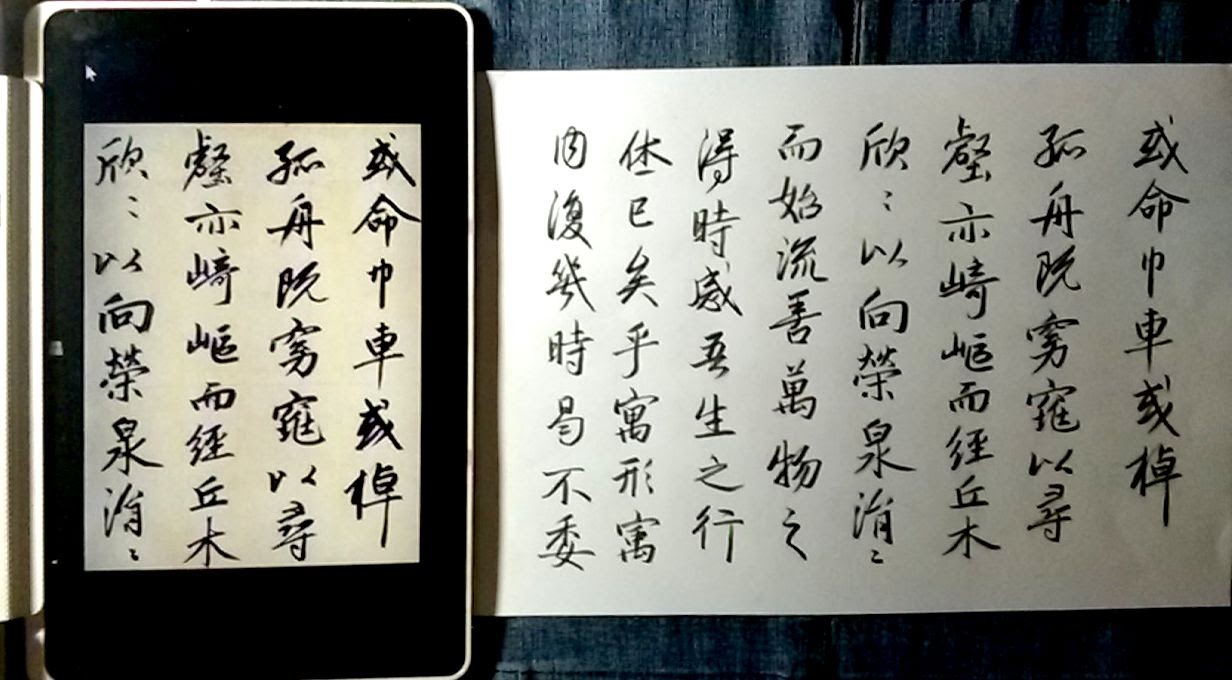 或命巾車或棹
孤舟既窈窕以尋
壑亦崎嶇而經丘木
欣〻以向榮泉涓〻
或命巾車或棹
孤舟既窈窕以尋
壑亦崎嶇而經丘木
欣〻以向榮泉涓〻
而始流善萬物之
得時感吾生之行
休已矣乎寓形寓
内復幾時曷不委